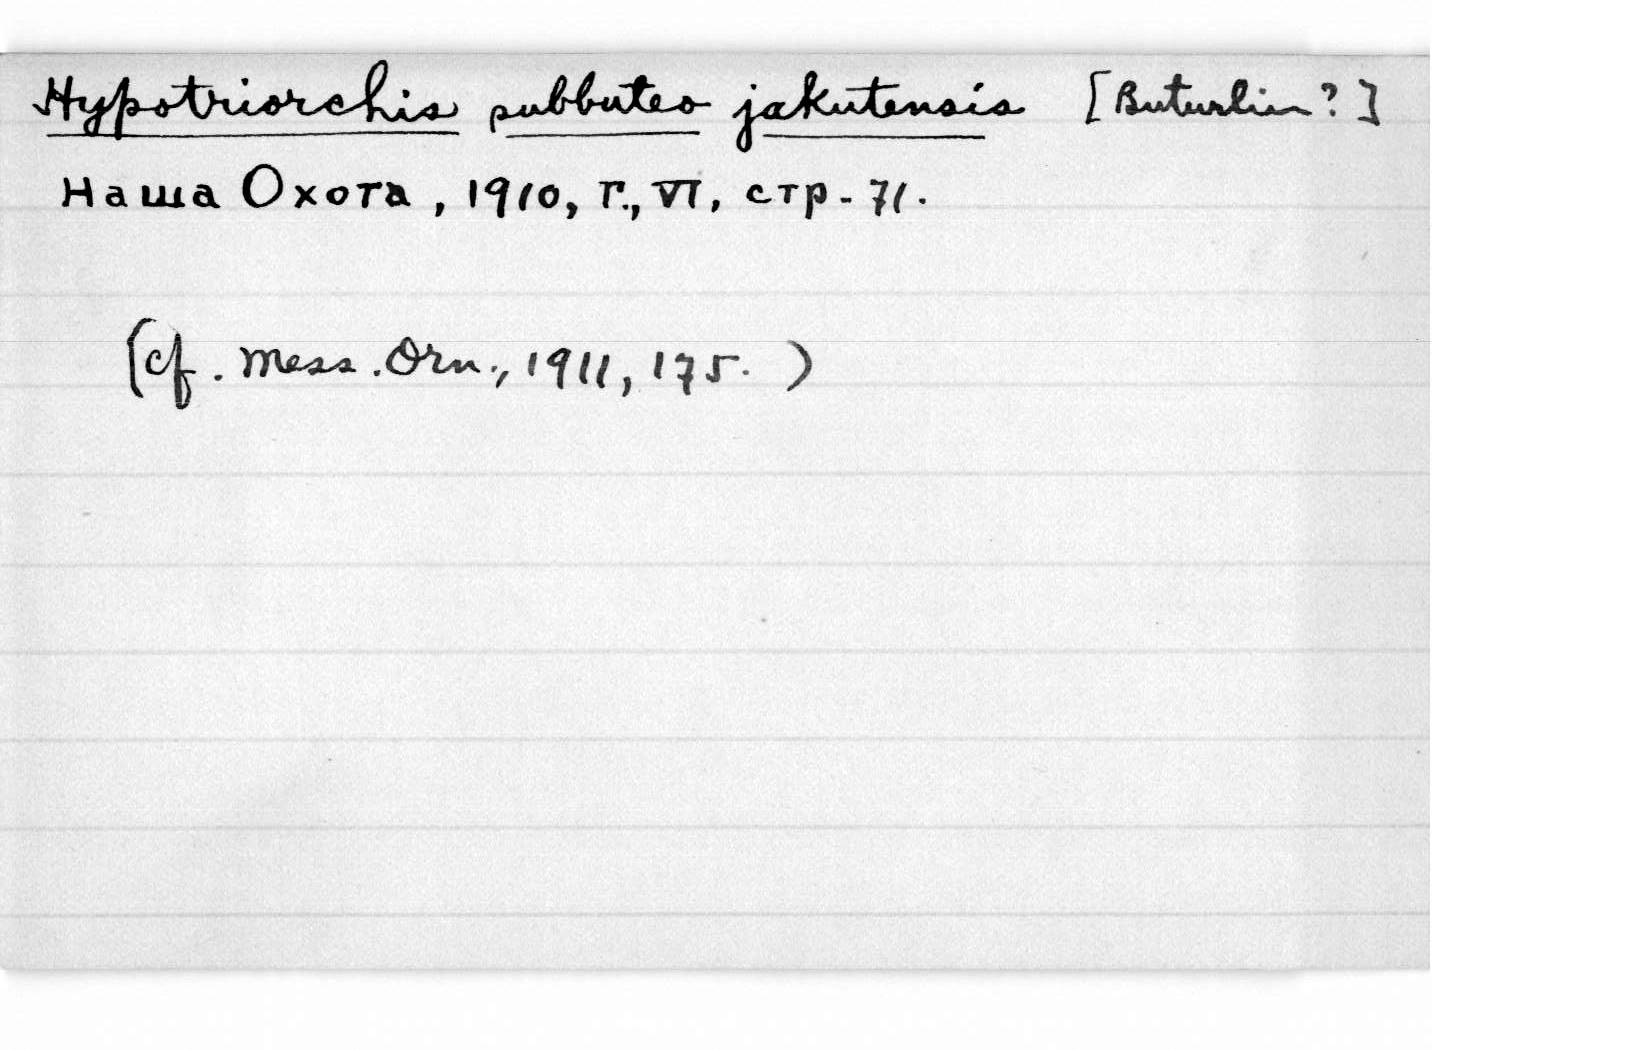 Hypotriorchis subbuteo jakutensis [Buturlin?]
Наша Охота, 1910, г., VI, стр. 71.
(cf. Mess. Orn., 1911, 175.)